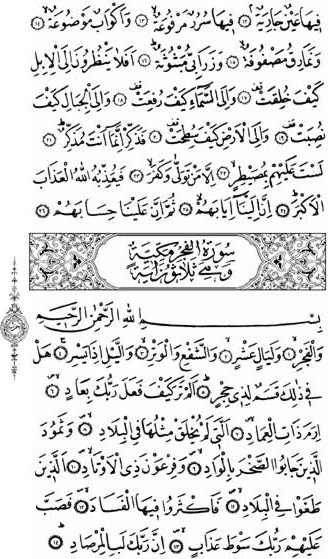 فِيهَا عَيْنٌ جَارِيَةٌ ﴿١٢﴾ فِيهَا سُرُرٌ مَرْفُوعَةٌ ﴿١٣﴾ وَأَكْوَابٌ مَوْضُوعَةٌ ﴿١٤﴾
وَنَمَارِقُ مَصْفُوفَةٌ ﴿١٥﴾ وَزَرَابِيُّ مَبْثُوثَةٌ ﴿١٦﴾ أَفَلَا يَنْظُرُونَ إِلَى الْإِبِلِ
كَيْفَ خُلِقَتْ ﴿١٧﴾ وَإِلَى السَّمَاءِ كَيْفَ رُفِعَتْ ﴿١٨﴾ وَإِلَى الْجِبَالِ كَيْفَ
نُصِبَتْ ﴿١٩﴾ وَإِلَى الْأَرْضِ كَيْفَ سُطِحَتْ ﴿٢٠﴾ فَذَكِّرْ إِنَّمَا أَنْتَ مُذَكِّرٌ ﴿٢١﴾
لَسْتَ عَلَيْهِمْ بِمُصَيْطِرٍ ﴿٢٢﴾ إِلَّا مَنْ تَوَلَّى وَكَفَرَ ﴿٢٣﴾ فَيُعَذِّبُهُ اللَّهُ الْعَذَابَ
الْأَكْبَرَ ﴿٢٤﴾ إِنَّ إِلَيْنَا إِيَابَهُمْ ﴿٢٥﴾ ثُمَّ إِنَّ عَلَيْنَا حِسَابَهُمْ ﴿٢٦﴾
سُورَةُ الْفَجْرِ مَكِّيَّةٌ
وَهِيَ ثَلَاثُونَ آيَةً
بِسْمِ اللَّهِ الرَّحْمَنِ الرَّحِيمِ
وَالْفَجْرِ ﴿١﴾ وَلَيَالٍ عَشْرٍ ﴿٢﴾ وَالشَّفْعِ وَالْوَتْرِ ﴿٣﴾ وَاللَّيْلِ إِذَا يَسْرِ ﴿٤﴾ هَلْ
فِي ذَلِكَ قَسَمٌ لِذِي حِجْرٍ ﴿٥﴾ أَلَمْ تَرَ كَيْفَ فَعَلَ رَبُّكَ بِعَادٍ ﴿٦﴾
إِرَمَ ذَاتِ الْعِمَادِ ﴿٧﴾ الَّتِي لَمْ يُخْلَقْ مِثْلُهَا فِي الْبِلَادِ ﴿٨﴾ وَثَمُودَ
الَّذِينَ جَابُوا الصَّخْرَ بِالْوَادِ ﴿٩﴾ وَفِرْعَوْنَ ذِي الْأَوْتَادِ ﴿١٠﴾ الَّذِينَ
طَغَوْا فِي الْبِلَادِ ﴿١١﴾ فَأَكْثَرُوا فِيهَا الْفَسَادَ ﴿١٢﴾ فَصَبَّ
عَلَيْهِمْ رَبُّكَ سَوْطَ عَذَابٍ ﴿١٣﴾ إِنَّ رَبَّكَ لَبِالْمِرْصَادِ ﴿١٤﴾